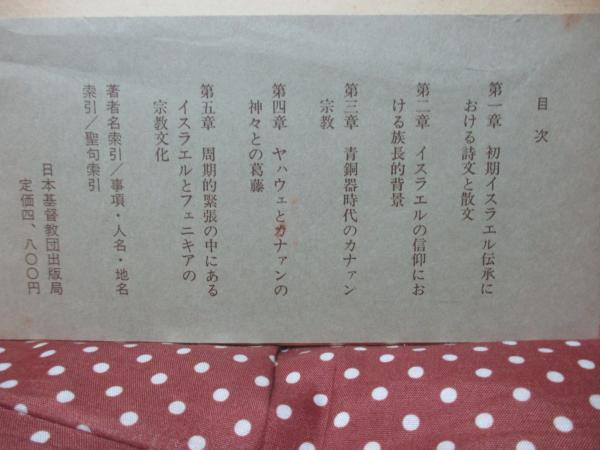 目次
第一章　初期イスラエル伝承に
おける詩文と散文
第二章　イスラエルの信仰にお
ける族長的背景
第三章　青銅器時代のカナァン
宗教
第四章　ヤハウェとカナァンの
神々との葛藤
第五章　周期的緊張の中にある
イスラエルとフェニキアの
宗教文化
著者名索引／事項・人名・地名
索引／聖句索引
日本基督教団出版局
定価四、八〇〇円